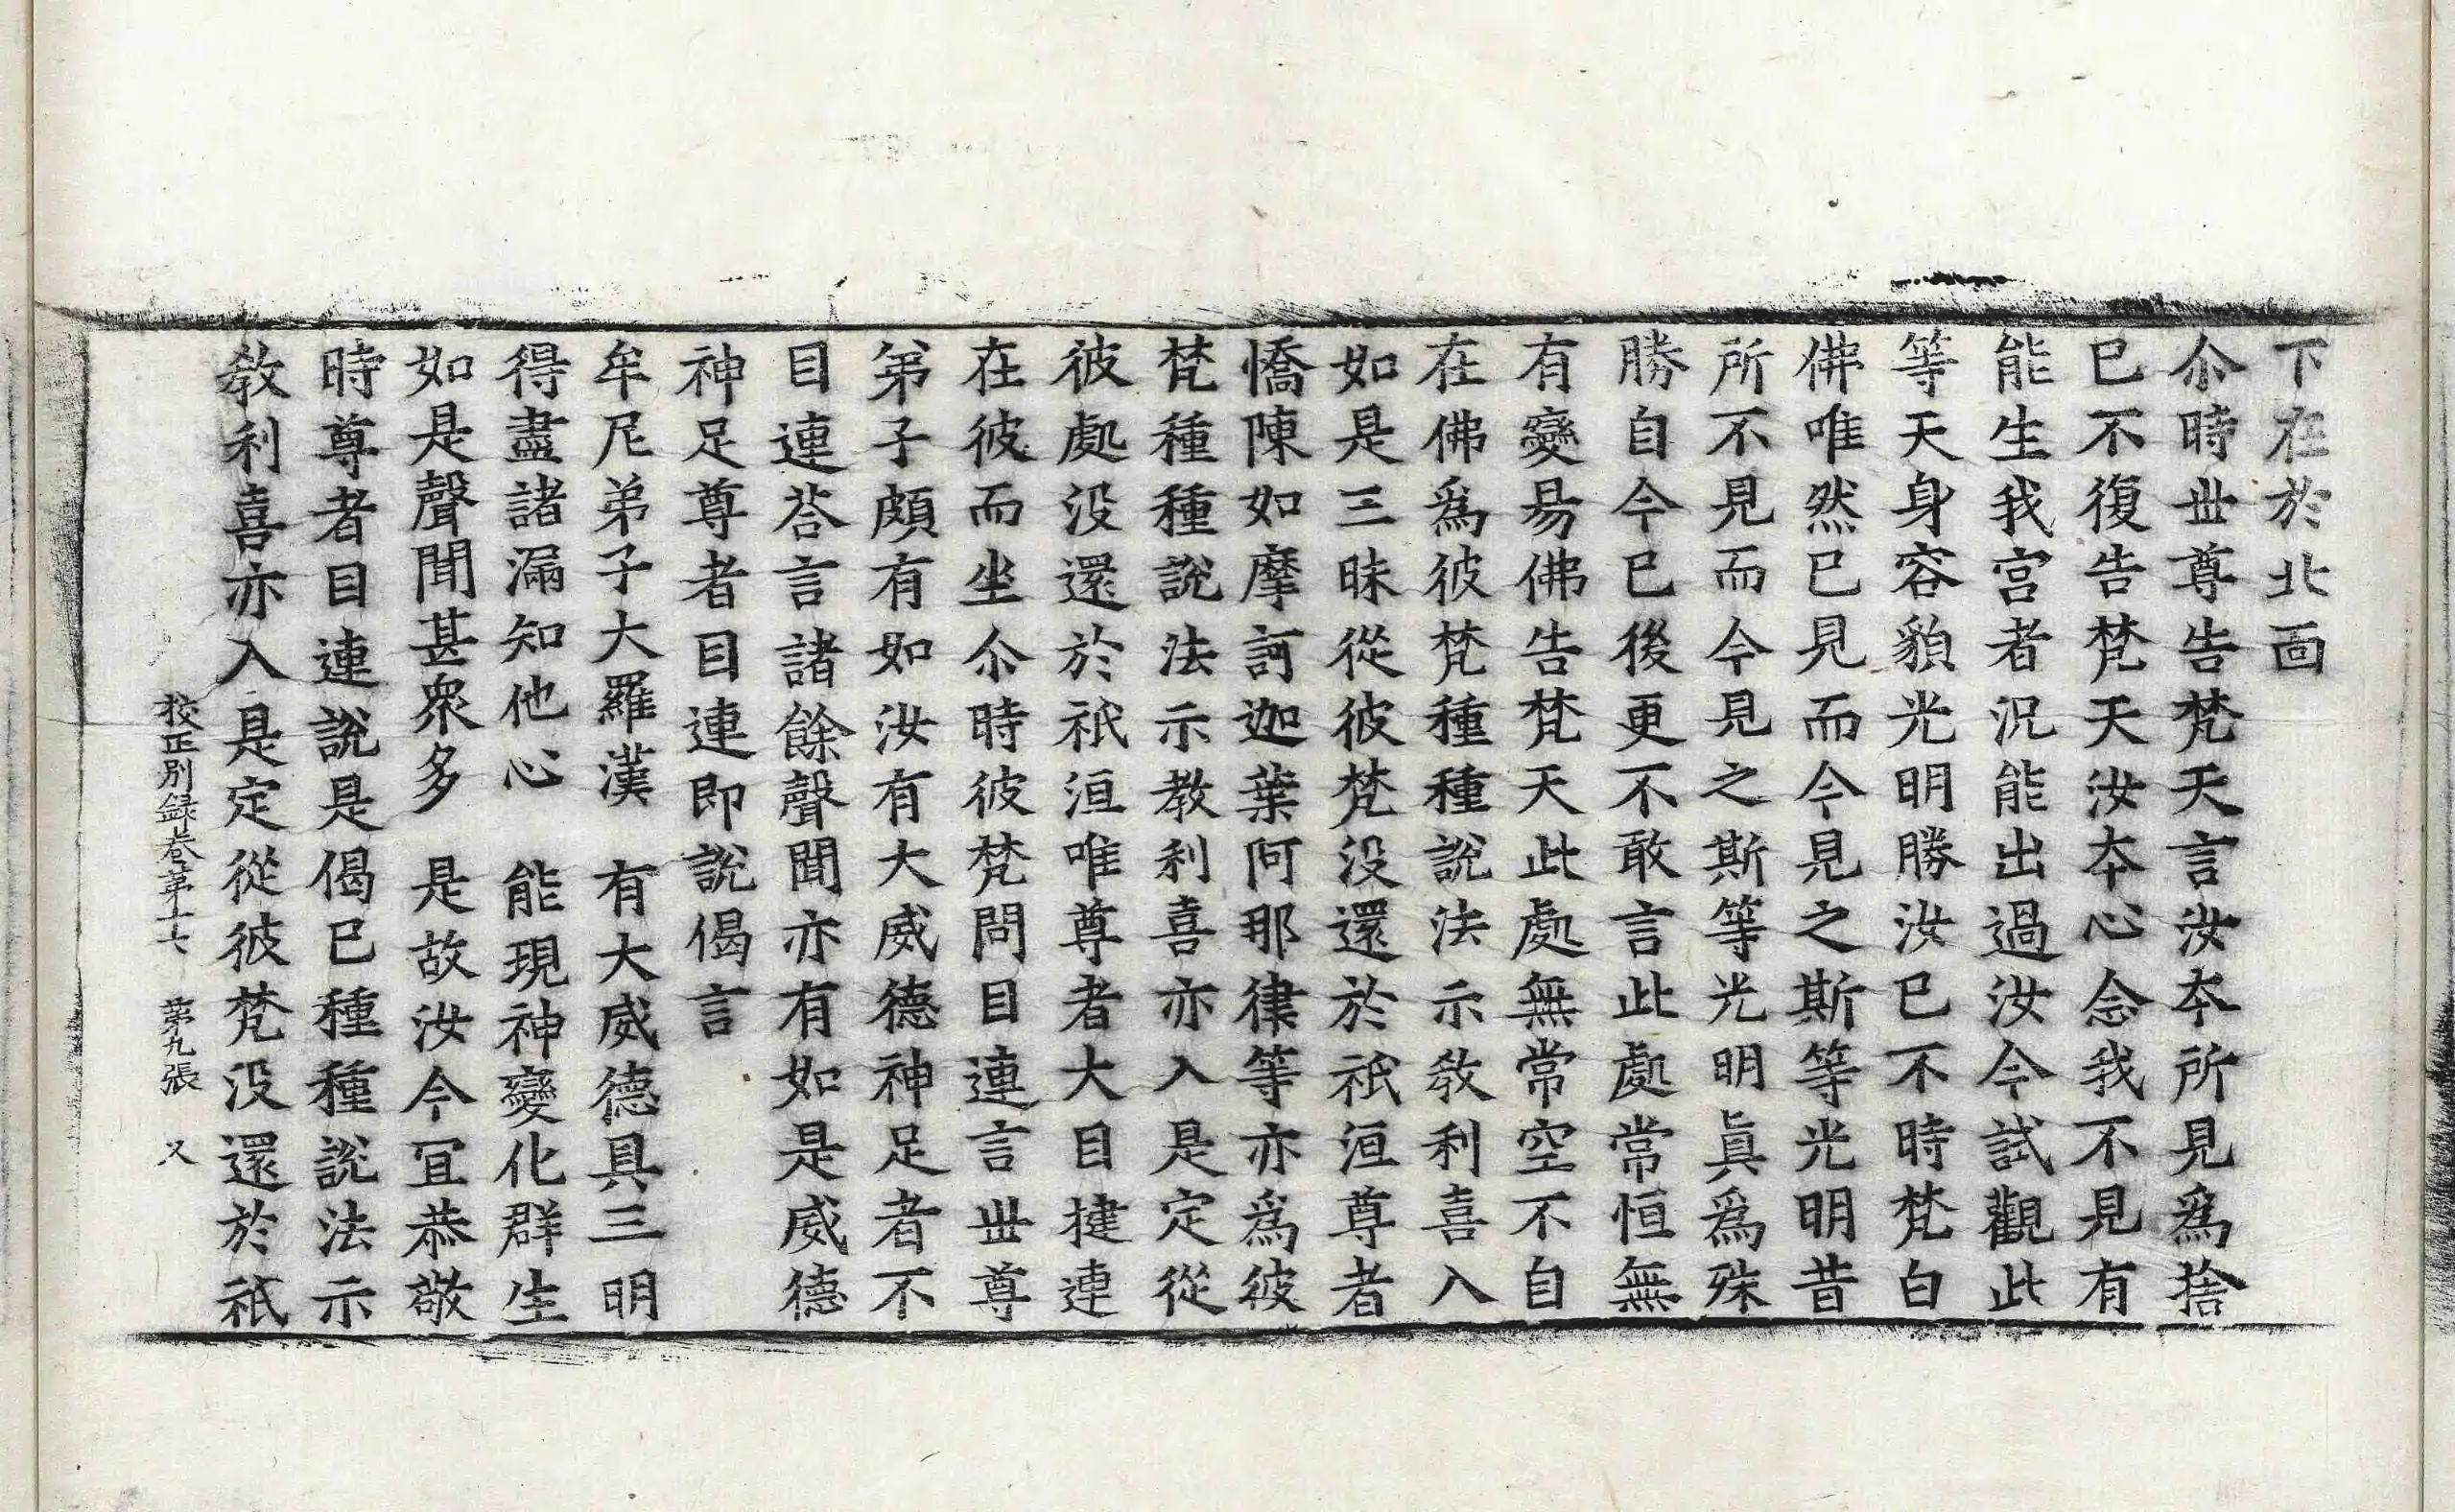 下在於北面
尒時丗尊告梵天言汝夲所見爲捨
已不復告梵天汝夲心念我不見有
能生我宫者況能出過汝今試觀此
等天身容貌光明勝汝已不時梵白
佛唯然已見而今見之斯等光明昔
所不見而今見之斯等光明眞爲殊
勝自今已後更不敢言此處常恒無
有變易佛告梵天此處無常空不自
在佛爲彼梵種種說法示教利喜入
如是三昧從彼梵没還於祇洹尊者
憍陳如摩訶迦葉阿那律等亦爲彼
梵種種說法示教利喜亦入是定從
彼處没還於祇洹唯尊者大目揵連
在彼而坐尒時彼梵問目連言丗尊
弟子頗有如汝有大威德神足者不
目連荅言諸餘聲聞亦有如是威德
神足尊者目連即說偈言
牟尼弟子大羅漢　有大威德具三明
得盡諸漏知他心　能現神變化群生
如是聲聞甚衆多　是故汝今冝恭敬
時尊者目連說是偈已種種說法示
教利喜亦入是定從彼梵没還於祇
校正别録卷苐十七　苐九張　乂